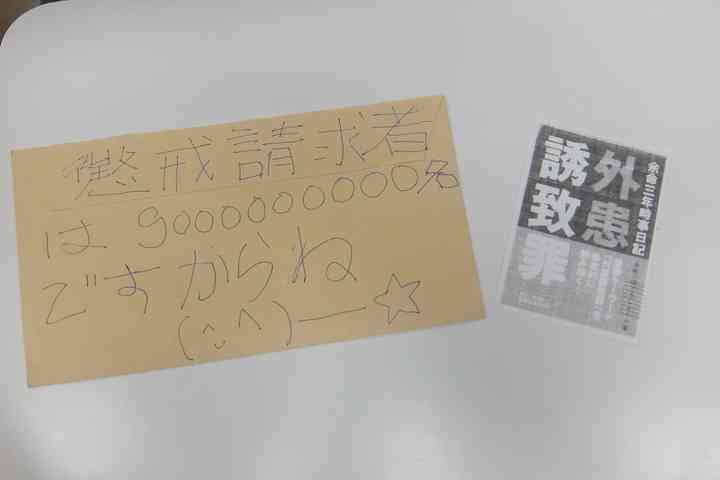 懲戒請求者
は 9000000000名
ですからね
(^ ^)―☆
余命三年時事日記
外患
誘致罪